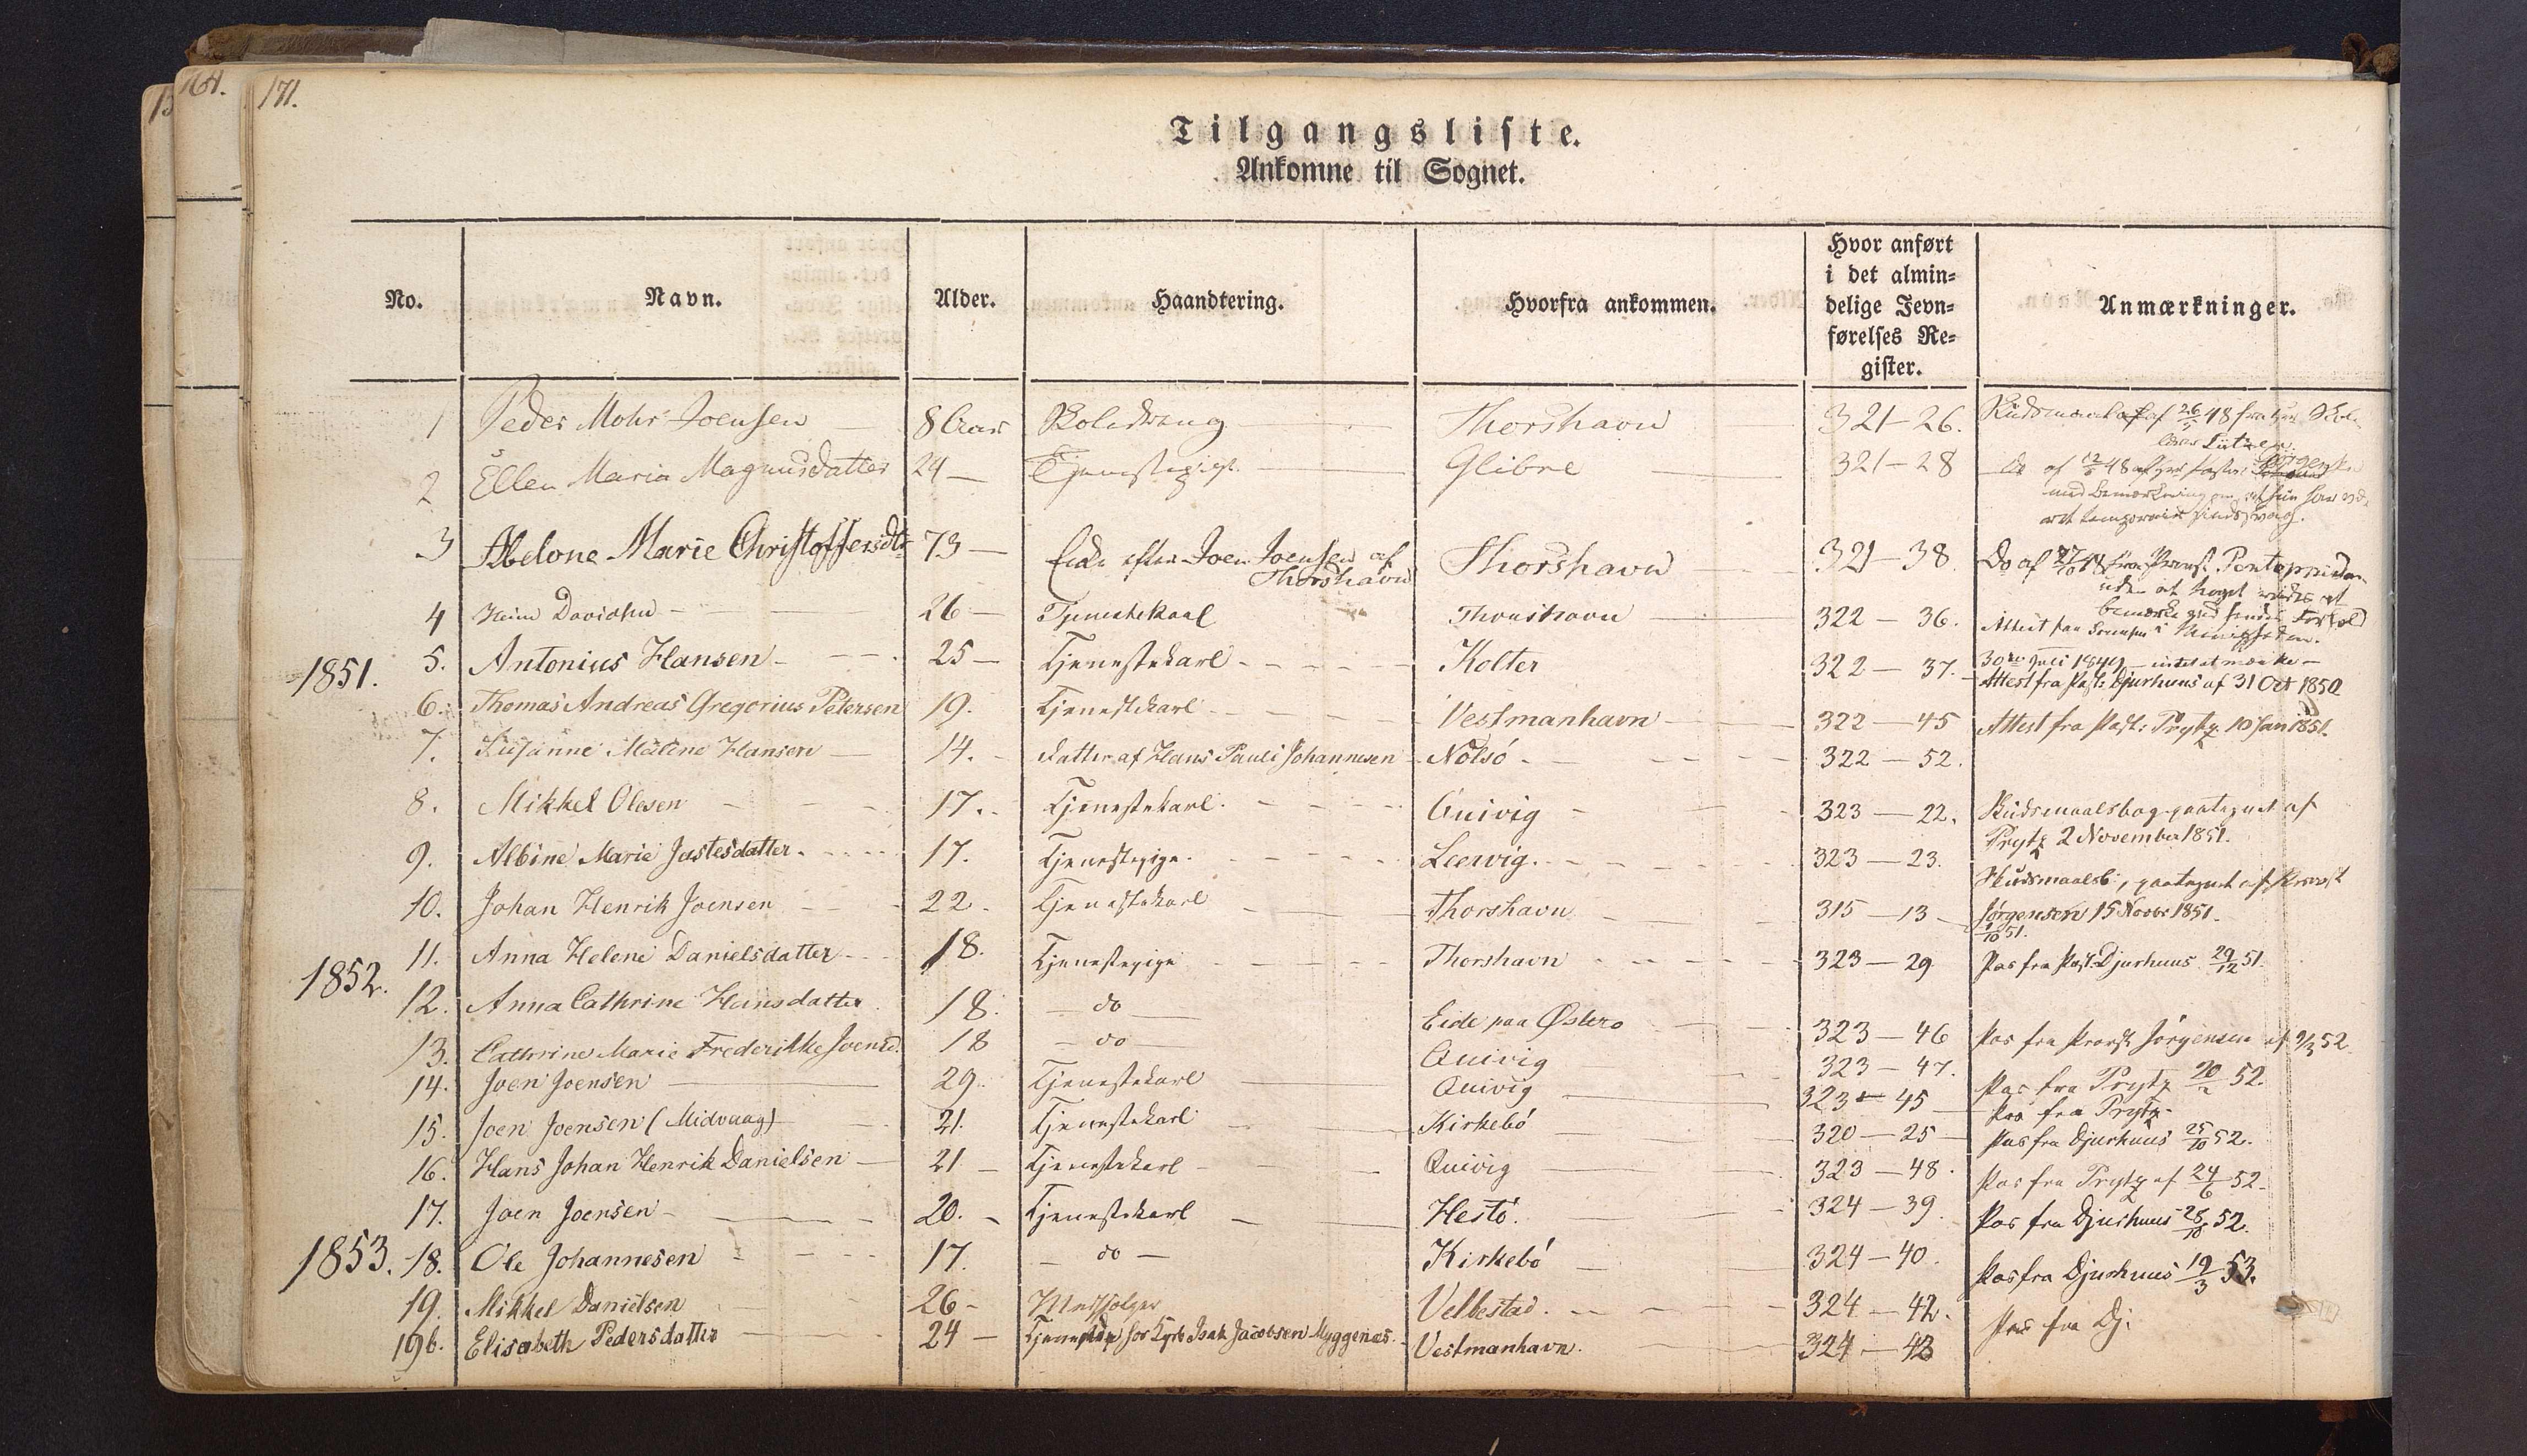 171.
164.
Tilgangsliste.
Ankomne til Sognet.
No. Navn. Alder. Haandtering. Hvorfra ankommen. Hvor anført i det almin= delige Jevn= førelses Re= gister. Anmærkninger.
1 Peder Mohr Joensen 8 Aar Skoledreng Thorshavn 321-26. af 26/5 48 fra
2 Ellen Maria Magnusdatter 24 — Tjenestepige Glibre 321-28 Do af 12/5 48 af
med Bemærkning om, at hun har
været temporair sindssvag.
3 Abelone Marie Christoffersdtr 73 — Enke efter Joen Joensen af Thorshavn Thorshavn 321-38. Do af 48 fra Provst
uden at noget vides at
bemærke ved hendes Forhold
i Menigheden.
4 Heine Davidsen 26 — Tjenestekarl Thorshavn 322-36. Attest fra Sørensen
30te Juli 1849 — intet at mærke —
1851. 5. Antonius Hansen 25 — Tjenestekarl Kolter 322-37. Attest fra Past: Djurhuus af 31 Oct 1850
6. Thomas Andreas Gregorius Petersen 19. Tjenestekarl Vestmanhavn 322-45 Attest fra Past: Prytz 10 Jan 1851.
7. Susanne Malene Hansen 14. Datter af Hans Pauli Johannesen Nólsó 322-52.
8. Mikkel Olesen 17. Tjenestekarl Qvivig 323-22. Skudsmaalsbog paategnet af
Prytz 2 November 1851.
9. Albine Marie Justesdatter 17. Tjenestepige Leervig 323-23. Skudsmaalsb:, paategnet af Provst
Jørgensen 15 Novbr 1851.
10. Johan Henrik Joensen 22. Tjenestekarl Thorshavn 315-13 1/10 51.
1852. 11. Anna Helene Danielsdatter 18. Tjenestepige Thorshavn 323-29 Pas fra Past. Djurhuus 29/12 51.
12. Anna Cathrine Hansdatter 18. do Eide paa Østerø 323-46 Pas fra Provst Jørgensen af 9/3 52.
13. Cathrine Marie Frederikke Joensd. 18 do Qvivig 323-47. Pas fra Prytz 52.
14. Joen Joensen 29. Tjenestekarl Qvivig 323-45 Pas fra Prytz
15. Joen Joensen (Midvaag) 21. Tjenestekarl Kirkebó 320-25 Pas fra Djurhuus 25/10 52.
16. Hans Johan Henrik Danielsen 21 Tjenestekarl Qvivig 323-48. Pas fra Prytz af 24/6 52.
17. Joen Joensen 20. Tjenestekarl Hestó. 324-39. Pas fra Djurhuus 25/10 52.
1853. 18. Ole Johannesen 17. do Kirkebó 324-40. Pas fra Djurhuus 19/3 53.
19. Mikkel Danielsen 26 Velbestad. 324-42. Pas fra Dj.
19b. Elisabeth Pedersdatter 24 — for Isak Jacobsen Myggenæs. Vestmanhavn. 324-43